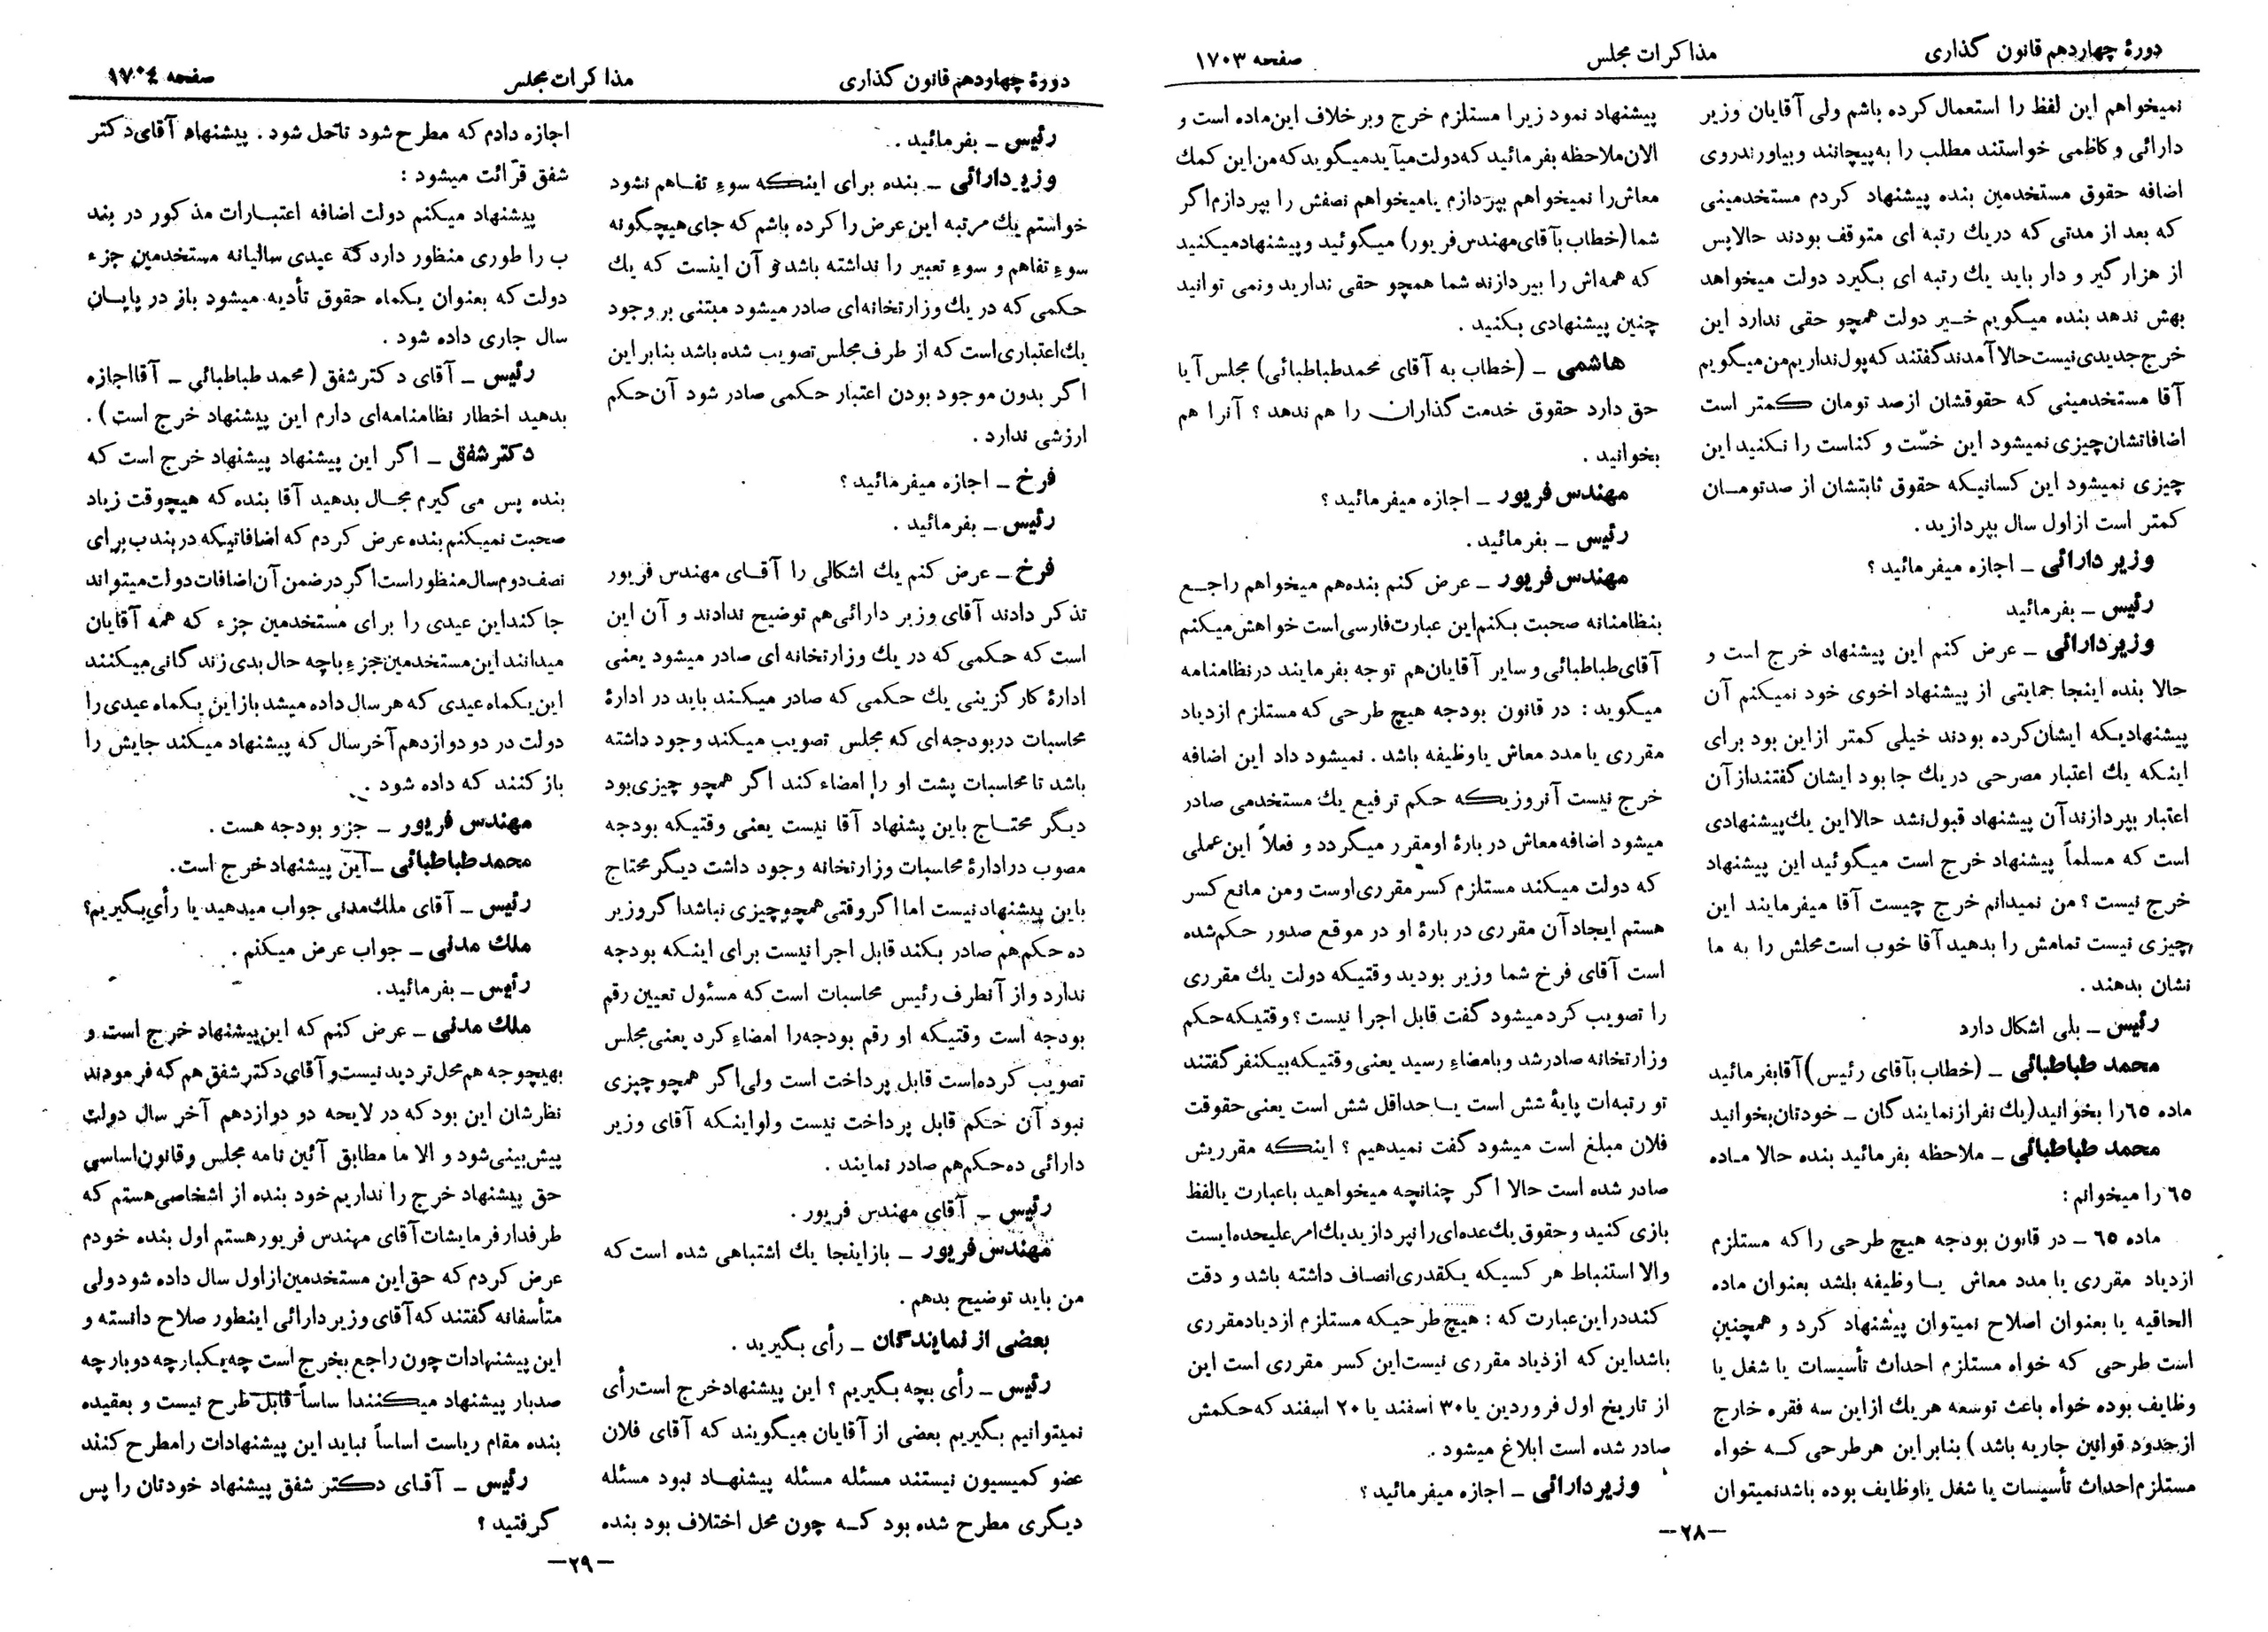 دورهٔ چهاردهم قانون گذاری
مذاکرات مجلس
صفحه ۱۷۰۳
نمیخواهم این لفظ را استعمال کرده باشم ولی آقایان وزیر
دارائی وکاظمی خواستند مطلب را به‌پیچانند وبیاورندروی
اضافه حقوق مستخدمین بنده پیشنهاد کردم مستخدمینی
که بعد از مدتی که دریك رتبه ای متوقف بودند حالاپس
از هزار گیر و دار باید یك رتبه ای بگیرد دولت میخواهد
بهش ندهد بنده میگویم خیر دولت همچو حقی ندارد این
خرج جدیدی نیست حالاآمدند گفتند که پول نداریم من میگویم
آقا مستخدمینی که حقوقشان ازصد تومان کمتر است
اضافاتشان چیزی نمیشود این خسّت و کناست را نکنید این
چیزی نمیشود این کسانیکه حقوق ثابتشان از صدتومان
کمتر است ازاول سال بپردازید .
وزیر دارائی ـ اجازه میفرمائید ؟
رئیس ـ بفرمائید
وزیردارائی ـ عرض کنم این پیشنهاد خرج است و
حالا بنده اینجا حمایتی از پیشنهاد اخوی خود نمیکنم آن
پیشنهادیکه ایشان کرده بودند خیلی کمتر ازاین بود برای
اینکه یك اعتبار مصرحی دریك جا بود ایشان گفتندازآن
اعتبار بپردازندآن پیشنهاد قبول نشد حالااین یك پیشنهادی
است که مسلماً پیشنهاد خرج است میگوئید این پیشنهاد
خرج نیست ؟ من نمیدانم خرج چیست آقا میفرمایند این
چیزی نیست تمامش را بدهید آقا خوب است محلش را به ما
نشان بدهند .
رئیس ـ بلی اشکال دارد
محمد طباطبائی ـ (خطاب بآقای رئیس) آقابفرمائید
ماده ٦٥را بخوانید(یك نفر ازنمایندگان ـ خودتان بخوانید
محمد طباطبائی ـ ملاحظه بفرمائید بنده حالا ماده
٦٥ را میخوانم :
ماده ٦٥ ـ در قانون بودجه هیچ طرحی را که مستلزم
ازدیاد مقرری یا مدد معاش یا وظیفه باشد بعنوان ماده
الحاقیه یا بعنوان اصلاح نمیتوان پیشنهاد کرد و همچنین
است طرحی که خواه مستلزم احداث تأسیسات یا شغل یا
وظایف بوده خواه باعث توسعه هریك ازاین سه فقره خارج
ازحدود قوانین جاریه باشد ) بنابراین هرطرحی که خواه
مستلزم احداث تأسیسات یا شغل یاوظایف بوده باشدنمیتوان
پیشنهاد نمود زیرا مستلزم خرج وبرخلاف این ماده است و
الان ملاحظه بفرمائید که دولت میآید میگوید که من این کمك
معاش را نمیخواهم بپردازم یامیخواهم نصفش را بپردازم اگر
شما (خطاب بآقای مهندس فریور) میگوئید وپیشنهاد میکنید
که همه‌اش را بپردازند شما همچو حقی ندارید ونمی توانید
چنین پیشنهادی بکنید .
هاشمی ـ (خطاب به آقای محمدطباطبائی) مجلس آیا
حق دارد حقوق خدمت گذاران را هم ندهد ؟ آنرا هم
بخوانید .
مهندس فریور ـ اجازه میفرمائید ؟
رئیس ـ بفرمائید .
مهندس فریور ـ عرض کنم بنده‌هم میخواهم راجع
بنظامنانه صحبت بکنم این عبارت فارسی است خواهش میکنم
آقای طباطبائی و سایر آقایان هم توجه بفرمایند در نظامنامه
میگوید : در قانون بودجه هیچ طرحی که مستلزم ازدیاد
مقرری یا مدد معاش یاوظیفه باشد . نمیشود داد این اضافه
خرج نیست آنروزیکه حکم ترفیع یك مستخدمی صادر
میشود اضافه معاش دربارهٔ اومقرر میگردد و فعلاً این عملی
که دولت میکند مستلزم کسر مقرری اوست ومن مانع کسر
هستم ایجادآن مقرری دربارهٔ او در موقع صدور حکم شده
است آقای فرخ شما وزیر بودید وقتیکه دولت یك مقرری
را تصویب کرد میشود گفت قابل اجرا نیست ؟ وقتیکه حکم
وزارتخانه صادر شد و بامضاءِ رسید یعنی وقتیکه بیکنفر گفتند
تو رتبه‌ات پایهٔ شش است یا حداقل شش است یعنی حقوقت
فلان مبلغ است میشود گفت نمیدهیم ؟ اینکه مقرریش
صادر شده است حالا اگر چنانچه میخواهید باعبارت یالفظ
بازی کنید وحقوق یك عده‌ای را نپردازید یك امر علیحده‌ایست
والا استنباط هر کسیکه یکقدری انصاف داشته باشد و دقت
کند دراین عبارت که : هیچ طرحیکه مستلزم ازدیاد مقرری
باشداین که ازدیاد مقرری نیست این کسر مقرری است این
از تاریخ اول فروردین یا ۳۰ اسفند یا ۲۰ اسفند که حکمش
صادر شده است ابلاغ میشود .
وزیردارائی ـ اجازه میفرمائید ؟
ـ۲۸ـ
دورهٔ چهاردهم قانون گذاری
مذاکرات مجلس
صفحه ۱۷۰٤
رئیس ـ بفرمائید .
وزیردارائی ـ بنده برای اینکه سوءِ تفاهم نشود
خواستم یك مرتبه این عرض را کرده باشم که جای هیچگونه
سوءِ تفاهم و سوءِ تعبیر را نداشته باشد و آن اینست که یك
حکمی که در یك وزارتخانه‌ای صادر میشود مبتنی بروجود
یك اعتباری است که از طرف مجلس تصویب شده باشد بنابراین
اگر بدون موجود بودن اعتبار حکمی صادر شود آن حکم
ارزشی ندارد .
فرخ ـ اجازه میفرمائید ؟
رئیس ـ بفرمائید .
فرخ ـ عرض کنم یك اشکالی را آقای مهندس فریور
تذکر دادند آقای وزیر دارائی هم توضیح ندادند و آن این
است که حکمی که در یك وزارتخانه ای صادر میشود یعنی
ادارهٔ کارگزینی یك حکمی که صادر میکند باید در ادارهٔ
محاسبات در بودجه‌ای که مجلس تصویب میکند وجود داشته
باشد تا محاسبات پشت او را امضاء کند اگر همچو چیزی بود
دیگر محتاج باین پشنهاد آقا نیست یعنی وقتیکه بودجه
مصوب در ادارهٔ محاسبات وزارتخانه وجود داشت دیگر محتاج
باین پیشنهاد نیست اما اگر وقتی همچو چیزی نباشد اگروزیر
ده حکم هم صادر بکند قابل اجرا نیست برای اینکه بودجه
ندارد واز آنطرف رئیس محاسبات است که مسئول تعیین رقم
بودجه است وقتیکه او رقم بودجه را امضاءِ کرد یعنی مجلس
تصویب کرده‌است قابل پرداخت است ولی اگر همچو چیزی
نبود آن حکم قابل پرداخت نیست ولواینکه آقای وزیر
دارائی ده حکم هم صادر نمایند .
رئیس ـ آقای مهندس فریور .
مهندس فریور ـ بازاینجا یك اشتباهی شده است که
من باید توضیح بدهم .
بعضی از نمایندگان ـ رأی بگیرید .
رئیس ـ رأی بچه بگیریم ؟ این پیشنهاد خرج است رأی
نمیتوانیم بگیریم بعضی از آقایان میگویند که آقای فلان
عضو کمیسیون نیستند مسئله مسئله پیشنهاد نبود مسئله
دیگری مطرح شده بود که چون محل اختلاف بود بنده
اجازه دادم که مطرح شود تاحل شود . پیشنهاد آقای دکتر
شفق قرائت میشود :
پیشنهاد میکنم دولت اضافه اعتبارات مذکور در بند
ب را طوری منظور دارد که عیدی سالیانه مستخدمین جزء
دولت که بعنوان یکماه حقوق تأدیه میشود باز در پایان
سال جاری داده شود .
رئیس ـ آقای دکترشفق (محمد طباطبائی ـ آقااجازه
بدهید اخطار نظامنامه‌ای دارم این پیشنهاد خرج است ) .
دکترشفق ـ اگر این پیشنهاد پیشنهاد خرج است که
بنده پس می گیرم مجال بدهید آقا بنده که هیچوقت زیاد
صحبت نمیکنم بنده عرض کردم که اضافاتیکه دربندب برای
نصف دوم سال منظور است اگر در ضمن آن اضافات دولت میتواند
جا کند این عیدی را برای مستخدمین جزء که همه آقایان
میدانند این مستخدمین جزءِ باچه حال بدی زندگانی میکنند
این یکماه عیدی که هرسال داده میشد بازاین یکماه عیدی را
دولت در دو دوازدهم آخرسال که پیشنهاد میکند جایش را
باز کنند که داده شود .
مهندس فریور ـ جزو بودجه هست .
محمد طباطبائی ـ این پیشنهاد خرج است.
رئیس ـ آقای ملك‌مدنی جواب میدهید یا رأی بگیریم؟
ملك مدنی ـ جواب عرض میکنم .
رئیس ـ بفرمائید.
ملك مدنی ـ عرض کنم که این پیشنهاد خرج است و
بهیچوجه هم محل تردید نیست و آقای دکتر شفق هم که فرمودند
نظرشان این بود که در لایحه دو دوازدهم آخر سال دولت
پیش بینی شود و الا ما مطابق آئین نامه مجلس و قانون اساسی
حق پیشنهاد خرج را نداریم خود بنده از اشخاصی هستم که
طرفدار فرمایشات آقای مهندس فریور هستم اول بنده خودم
عرض کردم که حق این مستخدمین از اول سال داده شود ولی
متأسفانه گفتند که آقای وزیر دارائی اینطور صلاح دانسته و
این پیشنهادات چون راجع بخرج است چه یکبار چه دوبار چه
صدبار پیشنهاد میکنندا ساساً قابل طرح نیست و بعقیده
بنده مقام ریاست اساساً نباید این پیشنهادات رامطرح کنند
رئیس ـ آقای دکتر شفق پیشنهاد خودتان را پس
گرفتید ؟
ـ۲۹ـ